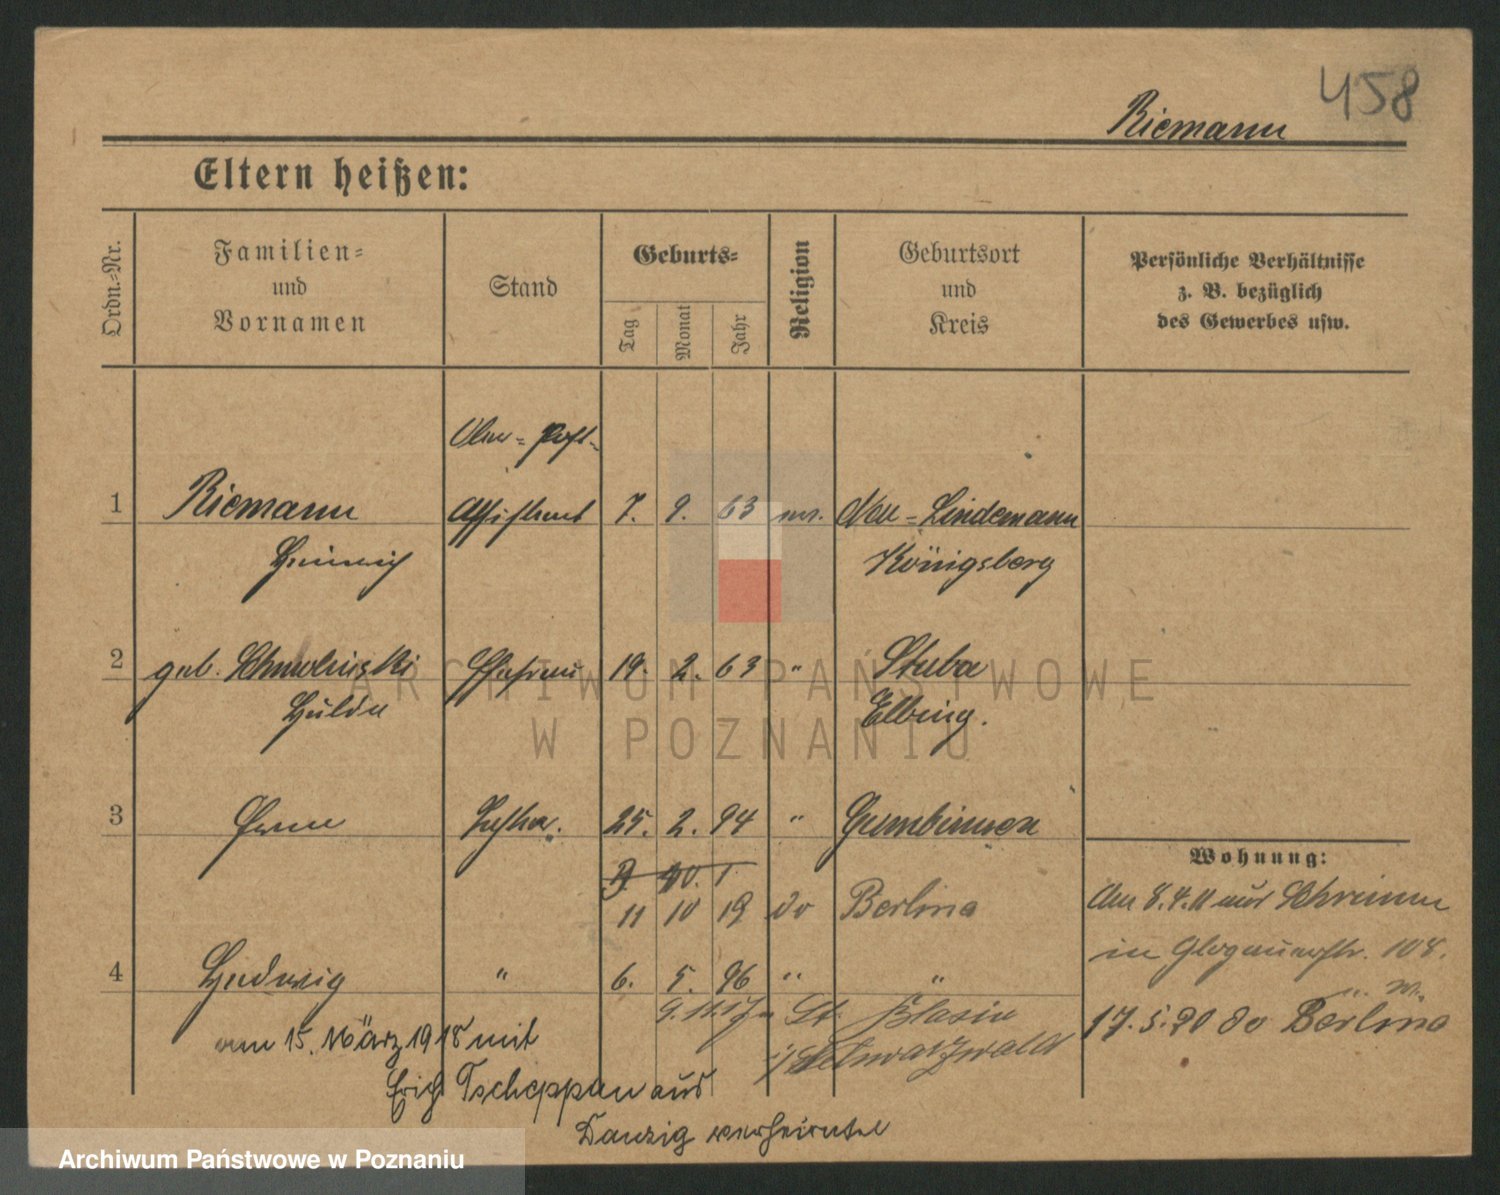 458
Riemann
Eltern heißen:
Ordn.-Nr.
Familien-
und
Vornamen
Stand
Geburts-
Tag
Monat
Jahr
Religion
Geburtsort
und
Kreis
Persönliche Verhältnisse
z. B. bezüglich
des Gewerbes usw.
Ober-Post-
1 Riemann Assistent 7. 9. 63 ev. Neu-Lindemann
Heinrich Königsberg
2 geb. Ehefrau 19. 2. 63 " Stuba
Hulda Elbing.
3 Erna Tochter. 25. 2. 94 " Gumbinnen
Wohnung:
11 10 19 do Berlin
Am 8.4.11 aus Schrimm
in Glogauerstr. 108.
4 Hedwig " 6. 5. 96 " "
9.11.17 St. Blasien
i/Schwarzwald
17.5.20 do Berlin
am 15. März 1918 mit
Erich aus
Danzig verheiratet
ARCHIWUM PAŃSTWOWE
W POZNANIU
Archiwum Państwowe w Poznaniu